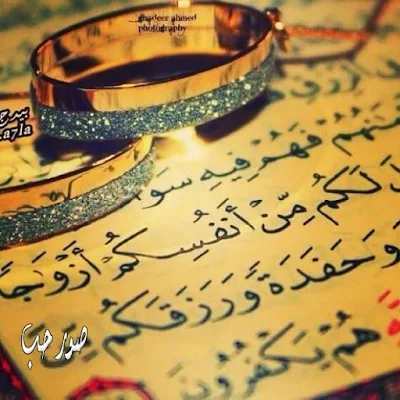 ghadeer ahmed
photography
a7la
فَهُمْ فِيهِ سَوَا
لَكُم مِّنْ أَنفُسِكُمْ أَزْوَٰجًا
وَحَفَدَةً وَرَزَقَكُم
هُمْ يَكْفُرُونَ
صور حب